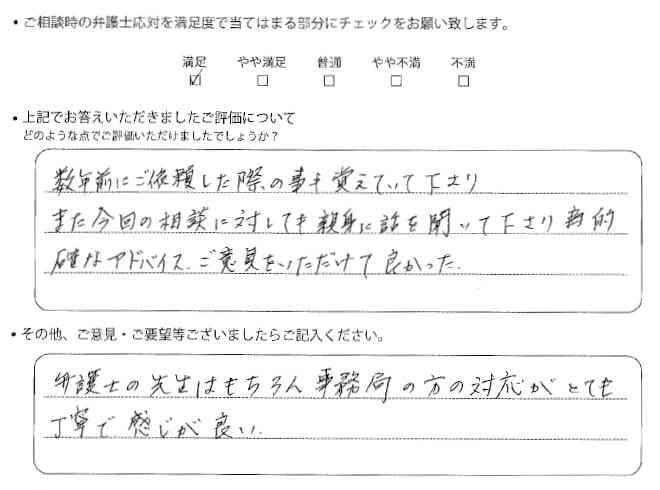 ・ご相談時の弁護士応対を満足度で当てはまる部分にチェックをお願い致します。
満足 やや満足 普通 やや不満 不満
☑ □ □ □ □
・上記でお答えいただきましたご評価について
どのような点でご評価いただけましたでしょうか？
数年前にご依頼した際、の事も覚えていて下さり
また今回の相談に対しても親身に話を聞いて下さり 的
確なアドバイス、ご意見をいただけて良かった。
・その他、ご意見・ご要望等ございましたらご記入ください。
弁護士の先生はもちろん事務局の方の対応がとても
丁寧で感じが良い。